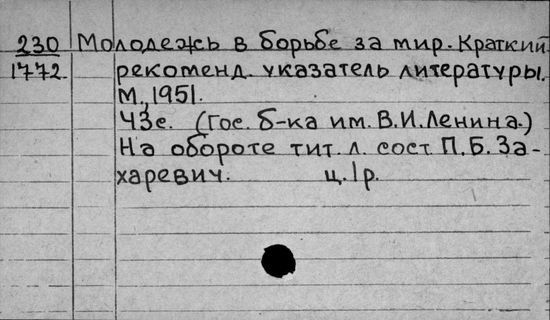 230 Молодежь в борьбе за мир. Краткий
1772 рекоменд. указатель литературы.
М., 1951.
43с. (Гос. б-ка им. В.И.Ленина.)
На обороте тит. л. сост. П.Б.За-
харевич. ц. 1р.